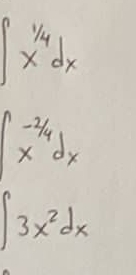 ∫ x^{1/4} dx
∫ x^{-2/4} dx
∫ 3x² dx